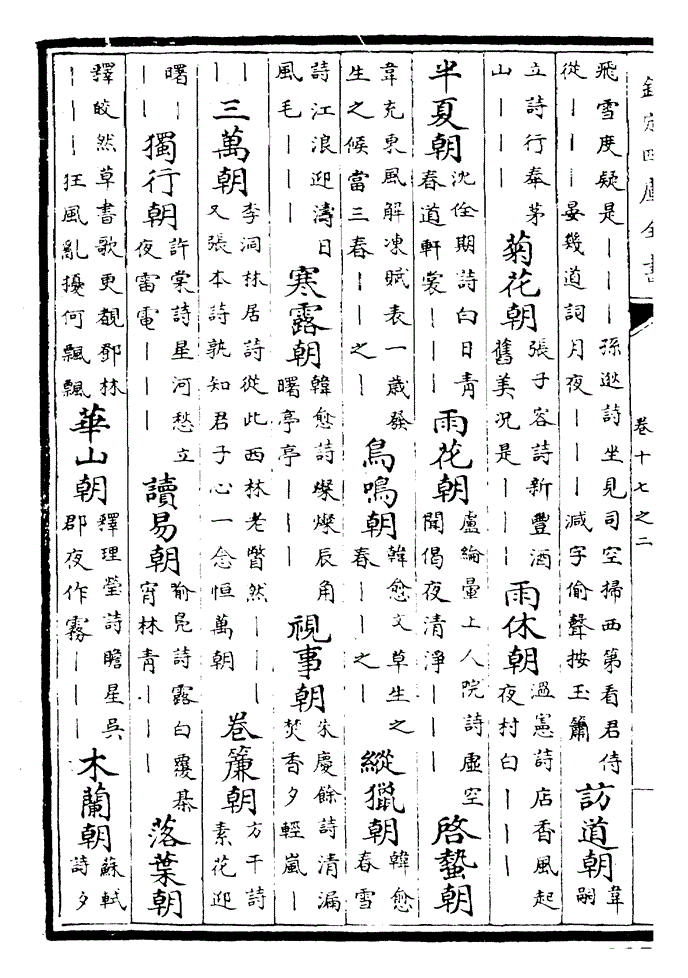 欽定四庫全書
卷十七之二
飛雪度疑是｜｜｜孫逖詩坐見司空掃西第看君侍
從｜｜｜晏幾道詞月夜｜｜｜減字偷聲按玉簫
訪道朝韋嗣
立詩行奉茅
山｜｜｜
菊花朝張子容詩新豐酒
舊美況是｜｜｜
雨休朝溫憲詩店香風起
夜村白｜｜｜
半夏朝沈佺期詩白日青
春道軒裳｜｜｜
雨花朝盧綸曇上人院詩虛空
聞偈夜清淨｜｜｜
啓蟄朝
韋充東風解凍賦表一歲發
生之候當三春｜｜之｜
鳥鳴朝韓愈文草生之
春｜｜之｜
縱獵朝韓愈
春雪
詩江浪迎濤日
風毛｜｜｜
寒露朝韓愈詩燦燦辰角
曙亭亭｜｜｜
視事朝朱慶餘詩清漏
焚香夕輕嵐｜
｜
｜
三萬朝李洞林居詩從此西林老瞥然｜｜｜
又張本詩孰知君子心一念恒萬朝
卷簾朝方干詩
素花迎
曙｜
｜｜
獨行朝許棠詩星河愁立
夜雷電｜｜｜
讀易朝喻鳧詩露白覆棊
宵林青｜｜｜
落葉朝
釋皎然草書歌更覩鄧林
｜｜｜狂風亂擾何飄飄
華山朝釋理瑩詩瞻星吳
郡夜作霧｜｜｜
木蘭朝蘇軾
詩夕